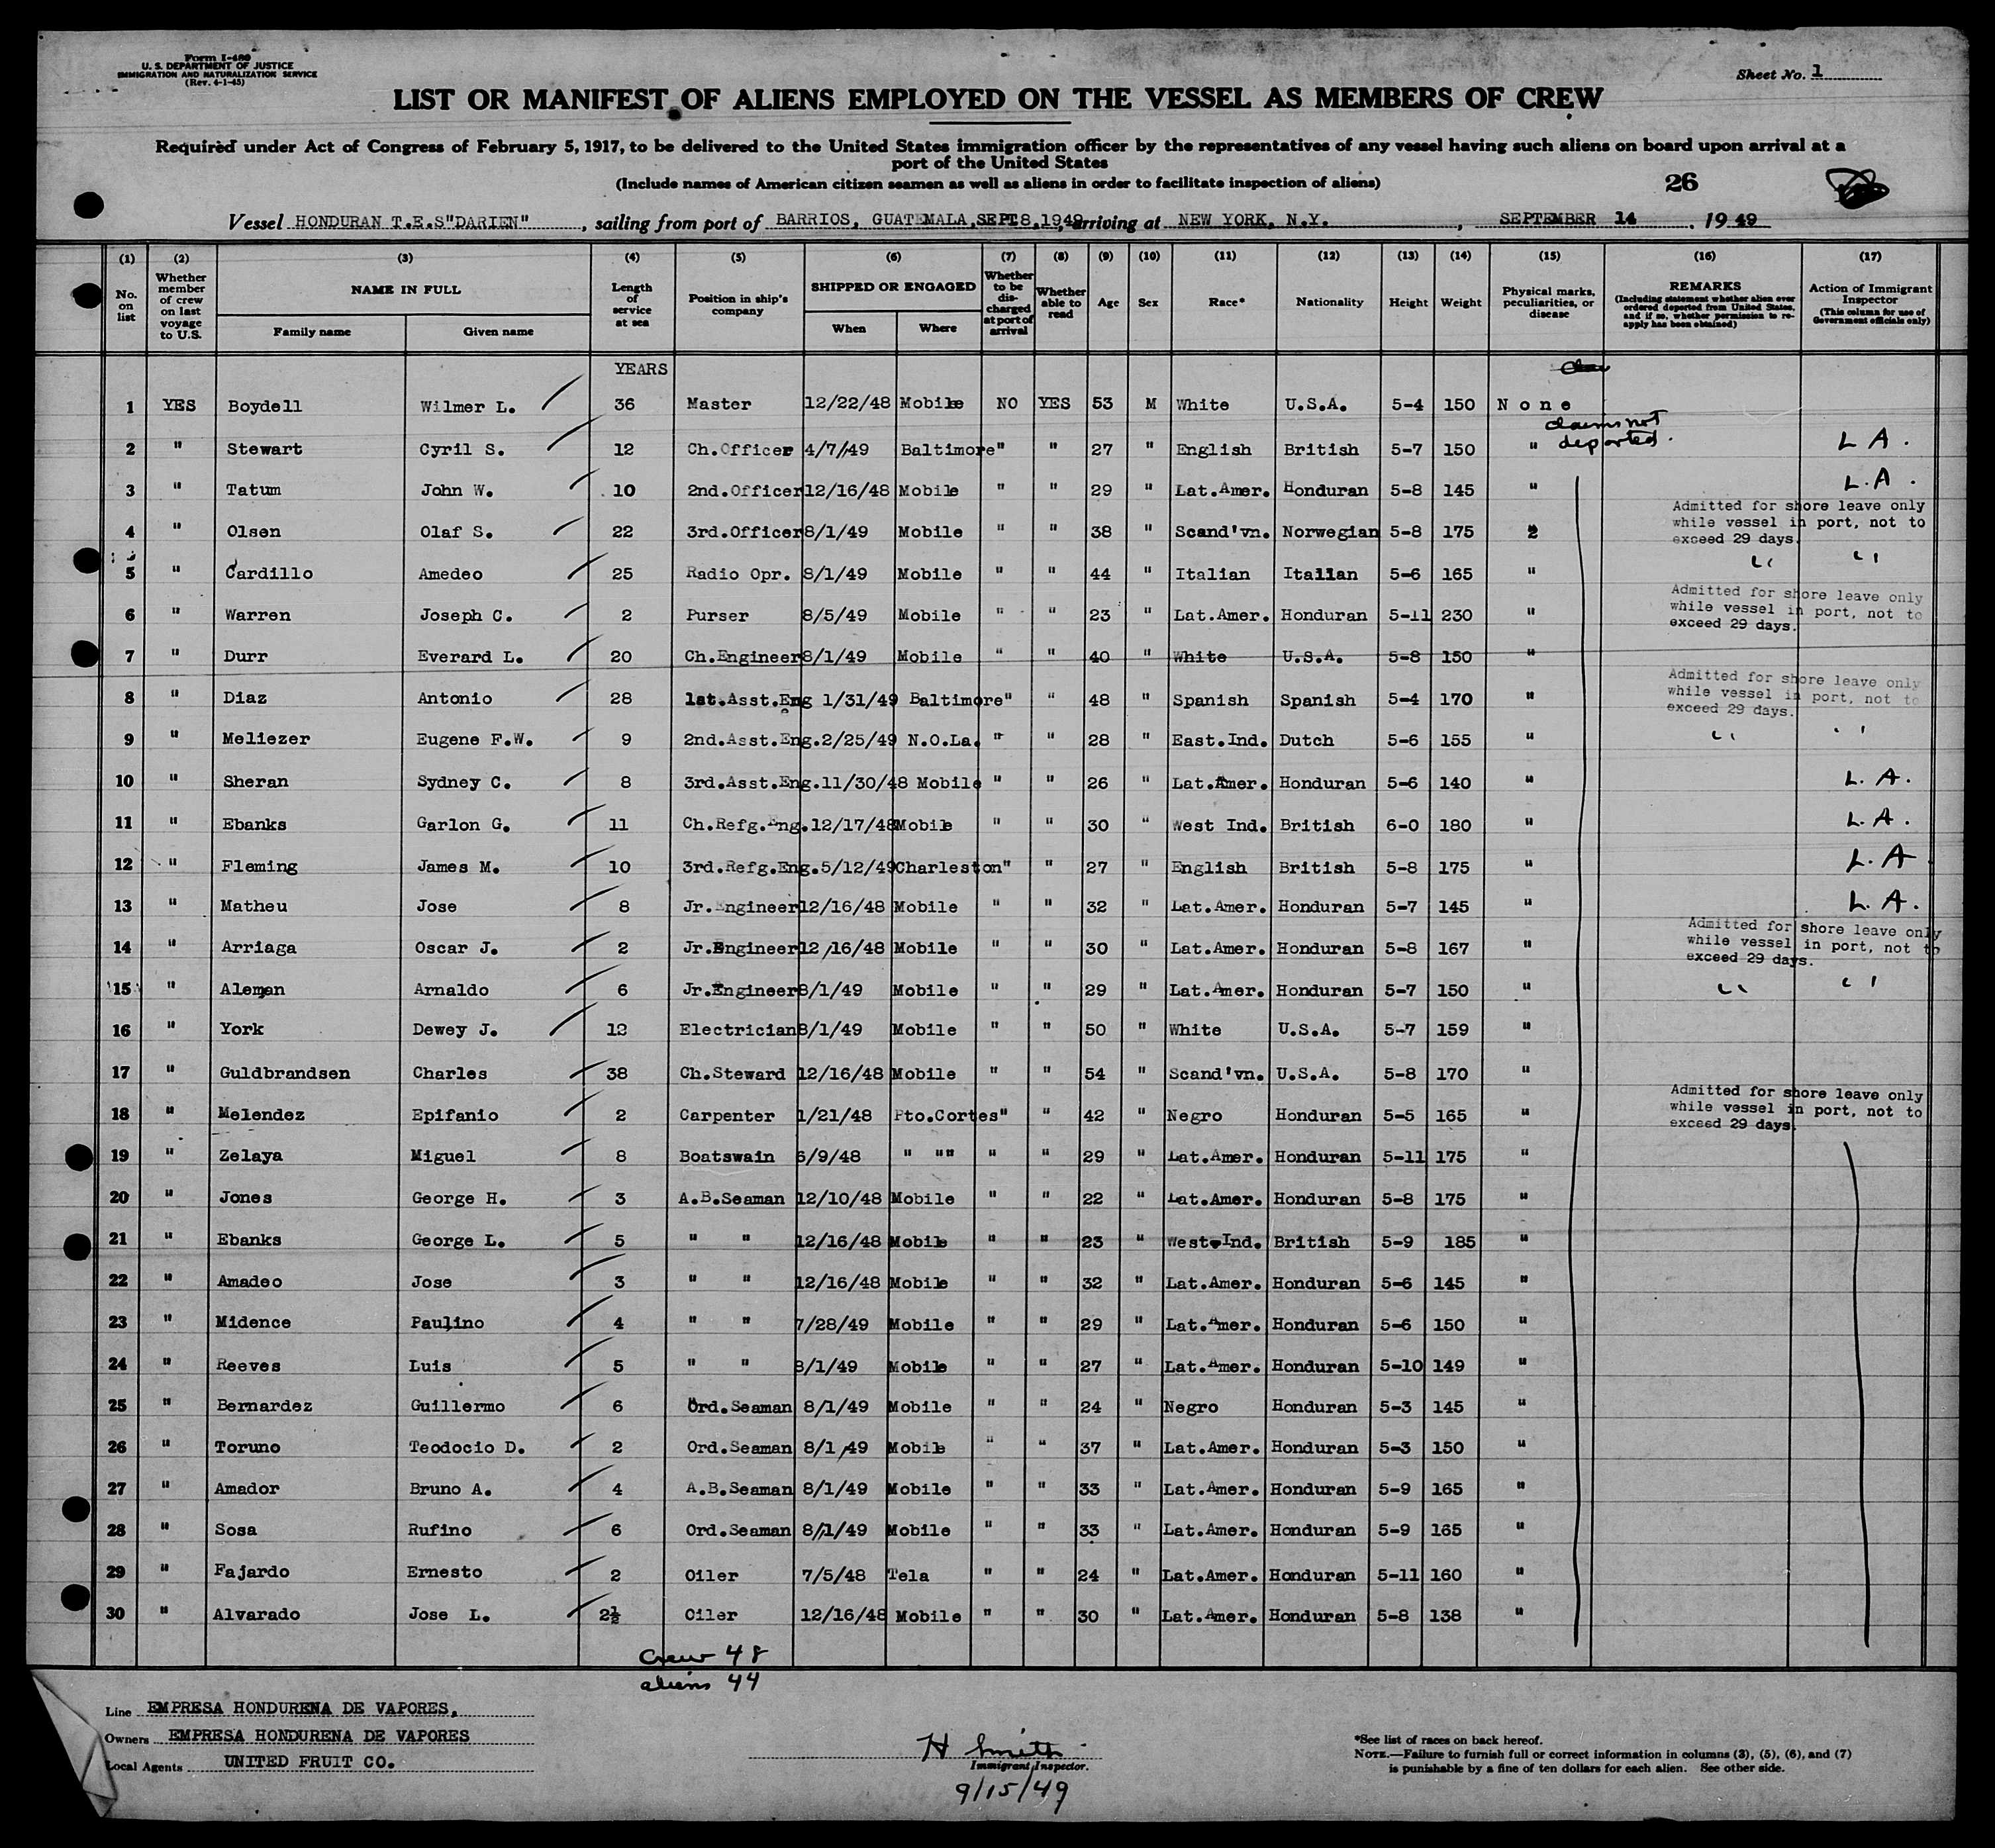 Form I-480
U. S. DEPARTMENT OF JUSTICE
IMMIGRATION AND NATURALIZATION SERVICE
(Rev. 4-1-45)
Sheet No. 1
LIST OR MANIFEST OF ALIENS EMPLOYED ON THE VESSEL AS MEMBERS OF CREW
Required under Act of Congress of February 5, 1917, to be delivered to the United States immigration officer by the representatives of any vessel having such aliens on board upon arrival at a
port of the United States
(Include names of American citizen seamen as well as aliens in order to facilitate inspection of aliens)
26
Vessel HONDURAN T.E.S"DARIEN", sailing from port of BARRIOS, GUATEMALA,SEPT.8,1949, arriving at NEW YORK, N.Y., SEPTEMBER 14, 1949
(1) (2) (3) (4) (5) (6) (7) (8) (9) (10) (11) (12) (13) (14) (15) (16) (17)
No. on list | Whether member of crew on last voyage to U.S. | NAME IN FULL | Family name | Given name | Length of service at sea | Position in ship's company | SHIPPED OR ENGAGED | When | Where | Whether to be discharged at port of arrival | Whether able to read | Age | Sex | Race* | Nationality | Height | Weight | Physical marks, peculiarities, or disease | REMARKS (Including statement whether alien ever ordered deported from United States, and if so, whether permission to reapply has been obtained) | Action of Immigrant Inspector (This column for use of Government officials only)
YEARS
1 YES Boydell Wilmer L. 36 Master 12/22/48 Mobile NO YES 53 M White U.S.A. 5-4 150 None
claims not
deported.
2 " Stewart Cyril S. 12 Ch.Officer 4/7/49 Baltimore " " 27 " English British 5-7 150 " L A.
3 " Tatum John W. 10 2nd.Officer 12/16/48 Mobile " " 29 " Lat.Amer. Honduran 5-8 145 " L.A.
4 " Olsen Olaf S. 22 3rd.Officer 8/1/49 Mobile " " 38 " Scand'vn. Norwegian 5-8 175 " Admitted for shore leave only while vessel in port, not to exceed 29 days.
5 " Cardillo Amedeo 25 Radio Opr. 8/1/49 Mobile " " 44 " Italian Italian 5-6 165 " " "
6 " Warren Joseph C. 2 Purser 8/5/49 Mobile " " 23 " Lat.Amer. Honduran 5-11 230 " Admitted for shore leave only while vessel in port, not to exceed 29 days.
7 " Durr Everard L. 20 Ch.Engineer 8/1/49 Mobile " " 40 " White U.S.A. 5-8 150 "
8 " Diaz Antonio 28 1st.Asst.Eng 1/31/49 Baltimore " " 48 " Spanish Spanish 5-4 170 " Admitted for shore leave only while vessel in port, not to exceed 29 days.
9 " Meliezer Eugene F.W. 9 2nd.Asst.Eng. 2/25/49 N.O.La. " " 28 " East.Ind. Dutch 5-6 155 " " "
10 " Sheran Sydney C. 8 3rd.Asst.Eng. 11/30/48 Mobile " " 26 " Lat.Amer. Honduran 5-6 140 " L.A.
11 " Ebanks Garlon G. 11 Ch.Refg.Eng. 12/17/48 Mobile " " 30 " West Ind. British 6-0 180 " L.A.
12 " Fleming James M. 10 3rd.Refg.Eng. 5/12/49 Charleston " " 27 " English British 5-8 175 " L.A
13 " Matheu Jose 8 Jr.Engineer 12/16/48 Mobile " " 32 " Lat.Amer. Honduran 5-7 145 " L.A.
14 " Arriaga Oscar J. 2 Jr.Engineer 12/16/48 Mobile " " 30 " Lat.Amer. Honduran 5-8 167 " Admitted for shore leave only while vessel in port, not to exceed 29 days.
15 " Aleman Arnaldo 6 Jr.Engineer 8/1/49 Mobile " " 29 " Lat.Amer. Honduran 5-7 150 " " "
16 " York Dewey J. 12 Electrician 8/1/49 Mobile " " 50 " White U.S.A. 5-7 159 "
17 " Guldbrandsen Charles 38 Ch.Steward 12/16/48 Mobile " " 54 " Scand'vn. U.S.A. 5-8 170 "
18 " Melendez Epifanio 2 Carpenter 1/21/48 Pto.Cortes " " 42 " Negro Honduran 5-5 165 " Admitted for shore leave only while vessel in port, not to exceed 29 days.
19 " Zelaya Miguel 8 Boatswain 6/9/48 " "" " " 29 " Lat.Amer. Honduran 5-11 175 "
20 " Jones George H. 3 A.B.Seaman 12/10/48 Mobile " " 22 " Lat.Amer. Honduran 5-8 175 "
21 " Ebanks George L. 5 " " 12/16/48 Mobile " " 23 " West.Ind. British 5-9 185 "
22 " Amadeo Jose 3 " " 12/16/48 Mobile " " 32 " Lat.Amer. Honduran 5-6 145 "
23 " Midence Paulino 4 " " 7/28/49 Mobile " " 29 " Lat.Amer. Honduran 5-6 150 "
24 " Reeves Luis 5 " " 8/1/49 Mobile " " 27 " Lat.Amer. Honduran 5-10 149 "
25 " Bernardez Guillermo 6 Ord.Seaman 8/1/49 Mobile " " 24 " Negro Honduran 5-3 145 "
26 " Toruno Teodocio D. 2 Ord.Seaman 8/1/49 Mobile " " 37 " Lat.Amer. Honduran 5-3 150 "
27 " Amador Bruno A. 4 A.B.Seaman 8/1/49 Mobile " " 33 " Lat.Amer. Honduran 5-9 165 "
28 " Sosa Rufino 6 Ord.Seaman 8/1/49 Mobile " " 33 " Lat.Amer. Honduran 5-9 165 "
29 " Fajardo Ernesto 2 Oiler 7/5/48 Tela " " 24 " Lat.Amer. Honduran 5-11 160 "
30 " Alvarado Jose L. 2½ Oiler 12/16/48 Mobile " " 30 " Lat.Amer. Honduran 5-8 138 "
Crew 48
aliens 44
Line EMPRESA HONDURENA DE VAPORES,
Owners EMPRESA HONDURENA DE VAPORES
Local Agents UNITED FRUIT CO.
H Smith
Immigrant Inspector.
9/15/49
*See list of races on back hereof.
NOTE.—Failure to furnish full or correct information in columns (3), (5), (6), and (7)
is punishable by a fine of ten dollars for each alien. See other side.